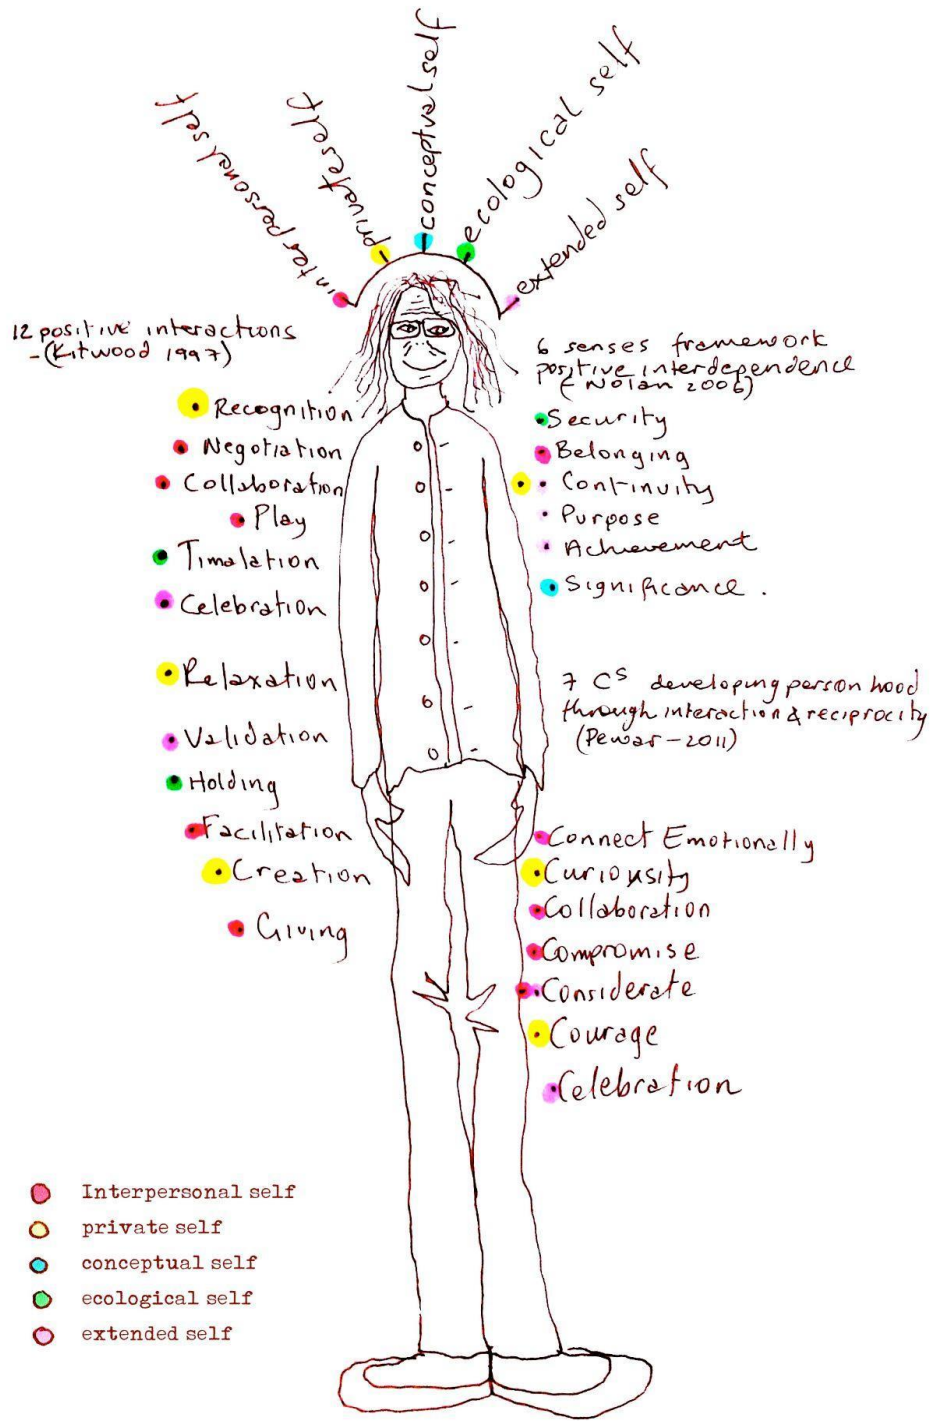 interpersonal self
private self
conceptual self
ecological self
extended self
12 positive interactions
- (Kitwood 1997)
Recognition
Negotiation
Collaboration
Play
Timalation
Celebration
Relaxation
Validation
Holding
Facilitation
Creation
Giving
6 senses framework
positive interdependence
(- Nolan 2006)
Security
Belonging
Continuity
Purpose
Achievement
Significance.
7 Cs developing person hood
through interaction & reciprocity
(Dewar - 2011)
Connect Emotionally
Curiousity
Collaboration
Compromise
Considerate
Courage
Celebration
Interpersonal self
private self
conceptual self
ecological self
extended self